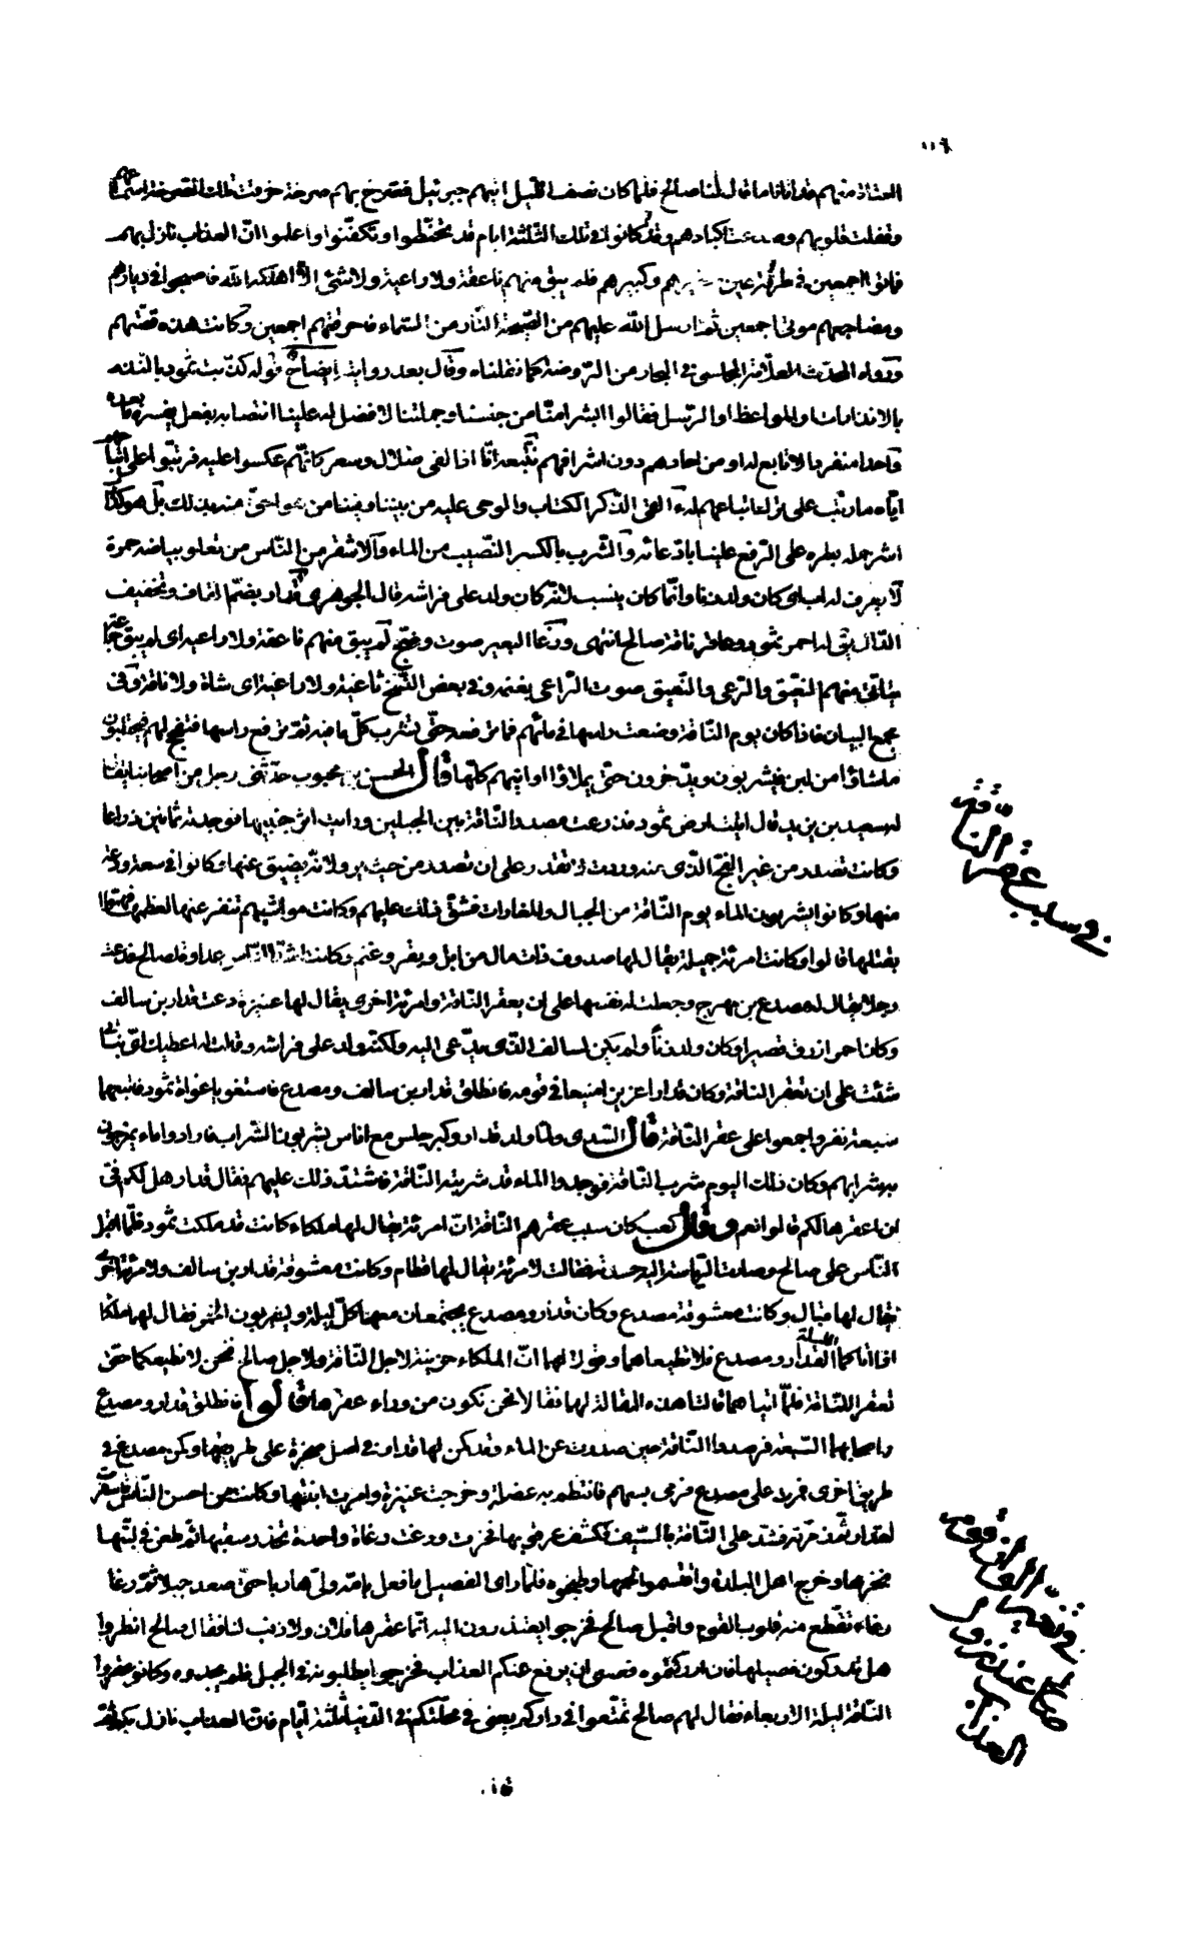 ١١٦
العتاة منهم قد اتانا ما قال لنا صالح فلما كان نصف الليل اتيهم جبرئيل فصرخ بهم صرخة خرقت تلك الصرخة اسماعهم
وفلقت قلوبهم وصدعت اكبادهم وقد كانوا فى تلك الثلثة ايام قد تحنطوا وتكفنوا وعلموا ان العذاب نازل بهم
فماتوا اجمعين فى طرفة عين صغيرهم وكبيرهم فلم يبق منهم ناعقة ولا راعية ولا شئ الا اهلكه الله فاصبحوا فى ديارهم
ومضاجعهم موتى اجمعين ثم ارسل الله عليهم من الصيحة النار من السماء فاحرقتهم اجمعين وكانت هذه قصتهم
ورواه المحدث العلامة المجلسى فى البحار من الروضة كما نقلناه وقال بعد روايته ايضاح قوله كذبت ثمود بالنذر
بالانذارات والمواعظ او الرسل فقالوا ابشرا منا من جنسنا وجملتنا لا فضل له علينا انتصابه بفعل يفسره ما بعده
واحدا منفردا لا تابع له او من احادهم دون اشرافهم نتبعه انا اذا لفى ضلال وسعر كانهم عكسوا عليه فرتبوا على اتباعهم
اياه ما رتب على ترك اتباعهم له ءالقى الذكر الكتاب والوحى عليه من بيننا وفينا من هو احق منه بذلك بل هو كذاب
اشر حمله بطره على الترفع علينا بادعائه والشرب بالكسر النصيب من الماء والاشقر من الناس من تعلو بياضه حمرة
لا يعرف له اب اى كان ولد زنا وانما كان ينسب لانه كان ولد على فراشه قال الجوهرى قدار بضم القاف وتخفيف
الدال يق له احمر ثمود وعاقر ناقة صالح انتهى ورغا البعير صوت وضج لم يبق منهم ناعقة ولا راعية اى لم يبق جماعة
يتاتى منهم النعيق والرعى والنعيق صوت الراعى بغنمه وفى بعض النسخ ثاغية ولا راغية اى شاة ولا ناقة وفى
مجمع البيان فاذا كان يوم الناقة وضعت راسها فى مائهم فما ترفعه حتى تشرب كل ما فيه ثم ترفع راسها فتفج لهم فيحتلبون
ما شاؤا من لبن فيشربون ويدخرون حتى يملاؤا اوانيهم كلها قال الحسن بن محبوب حدثنى رجل من اصحابنا يقال
له سعيد بن يزيد قال اتيت ارض ثمود فذرعت مصدر الناقة بين الجبلين ورايت اثر جنبيها فوجدته ثمانين ذراعا
وكانت تصدر من غير الفج الذى منه وردت لا تقدر على ان تصدر من حيث ترد لانه يضيق عنها وكانوا فى سعة ودعة
منها وكانوا يشربون الماء يوم الناقة من الجبال والمغارات فشق ذلك عليهم وكانت مواشيهم تنفر عنها لعظمها فهموا
بقتلها قالوا وكانت امرئة جميلة يقال لها صدوف ذات مال من ابل وبقر وغنم وكانت اشد الناس عداوة لصالح فدعت
رجلا يقال له مصدع بن مهرج وجعلت له نفسها على ان يعقر الناقة وامرئة اخرى يقال لها عنيزة دعت قدار بن سالف
وكان احمر ازرق قصيرا وكان ولد زنا ولم يكن لسالف الذى يدعى اليه ولكنه ولد على فراشه وقالت له اعطيك اى بناتى
شئت على ان تعقر الناقة وكان قدار اعزيزا منيعا فى قومه فانطلق قدار بن سالف ومصدع فاستغويا غواة ثمود فاتبعهما
سبعة نفر واجمعوا على عقر الناقة قال السدى ولما ولد قدار وكبر جلس مع اناس يشربون الشراب فارادوا ماء يمزجون
به شرابهم وكان ذلك اليوم شرب الناقة فوجدوا الماء قد شربته الناقة فاشتد ذلك عليهم فقال قدار هل لكم فى
ان اعقرها لكم قالوا نعم وقال كعب كان سبب عقرهم الناقة ان امرئة يقال لها ملكاء كانت قد ملكت ثمود فلما اقبل
الناس على صالح وصارت الرياسة اليه حسدته فقالت لامرئة يقال لها قطام وكانت معشوقة قدار بن سالف ولامرئة اخرى
يقال لها قبال وكانت معشوقة مصدع وكان قدار ومصدع يجتمعان معهما كل ليلة ويشربون الخمر فقال لهما ملكا
اذا اتاكما الليلة قدار ومصدع فلا تطيعاهما وقولا لهما ان الملكاء حزينة لاجل الناقة ولاجل صالح فنحن لا نطيعكما حتى
تعقرا الناقة فلما اتياهما قالتا هذه المقالة لهما فقالا نحن نكون من وراء عقرها قالوا فانطلق قدار ومصدع
واصحابهما السبعة فرصدوا الناقة حين صدرت عن الماء وقد كمن لها قدار فى اصل صخرة على طريقها وكمن مصدع فى
طريق اخرى فمرت على مصدع فرمى بسهم فانتظم به عضلة وخرجت عنيزة وامرت ابنتها وكانت من احسن الناس فاسفرت
لقدار ثم زمرته فشد على الناقة بالسيف فكشف عرقوبها فخرت ورغت رغاة واحدة تحذر سقبها ثم طعن فى لبتها
فنحرها وخرج اهل البلدة واقتسموا لحمها وطبخوه فلما راى الفصيل ما فعل بامه ولى هاربا حتى صعد جبلا ثم رغا
رغاء تقطع منه قلوب القوم واقبل صالح فخرجوا يعتذرون اليه انما عقرها فلان ولا ذنب لنا فقال صالح انظروا
هل تدركون فصيلها فان ادركتموه فعسى ان يرفع عنكم العذاب فخرجوا يطلبونه فى الجبل فلم يجدوه وكانوا عقروا
الناقة ليلة الاربعاء فقال لهم صالح تمتعوا فى داركم يعنى فى محلتكم فى الدنيا ثلثة ايام فان العذاب نازل بكم ثم
فى سبب عقر الناقة
فى تعيين الواقعة
صالح عند نزول
العذاب